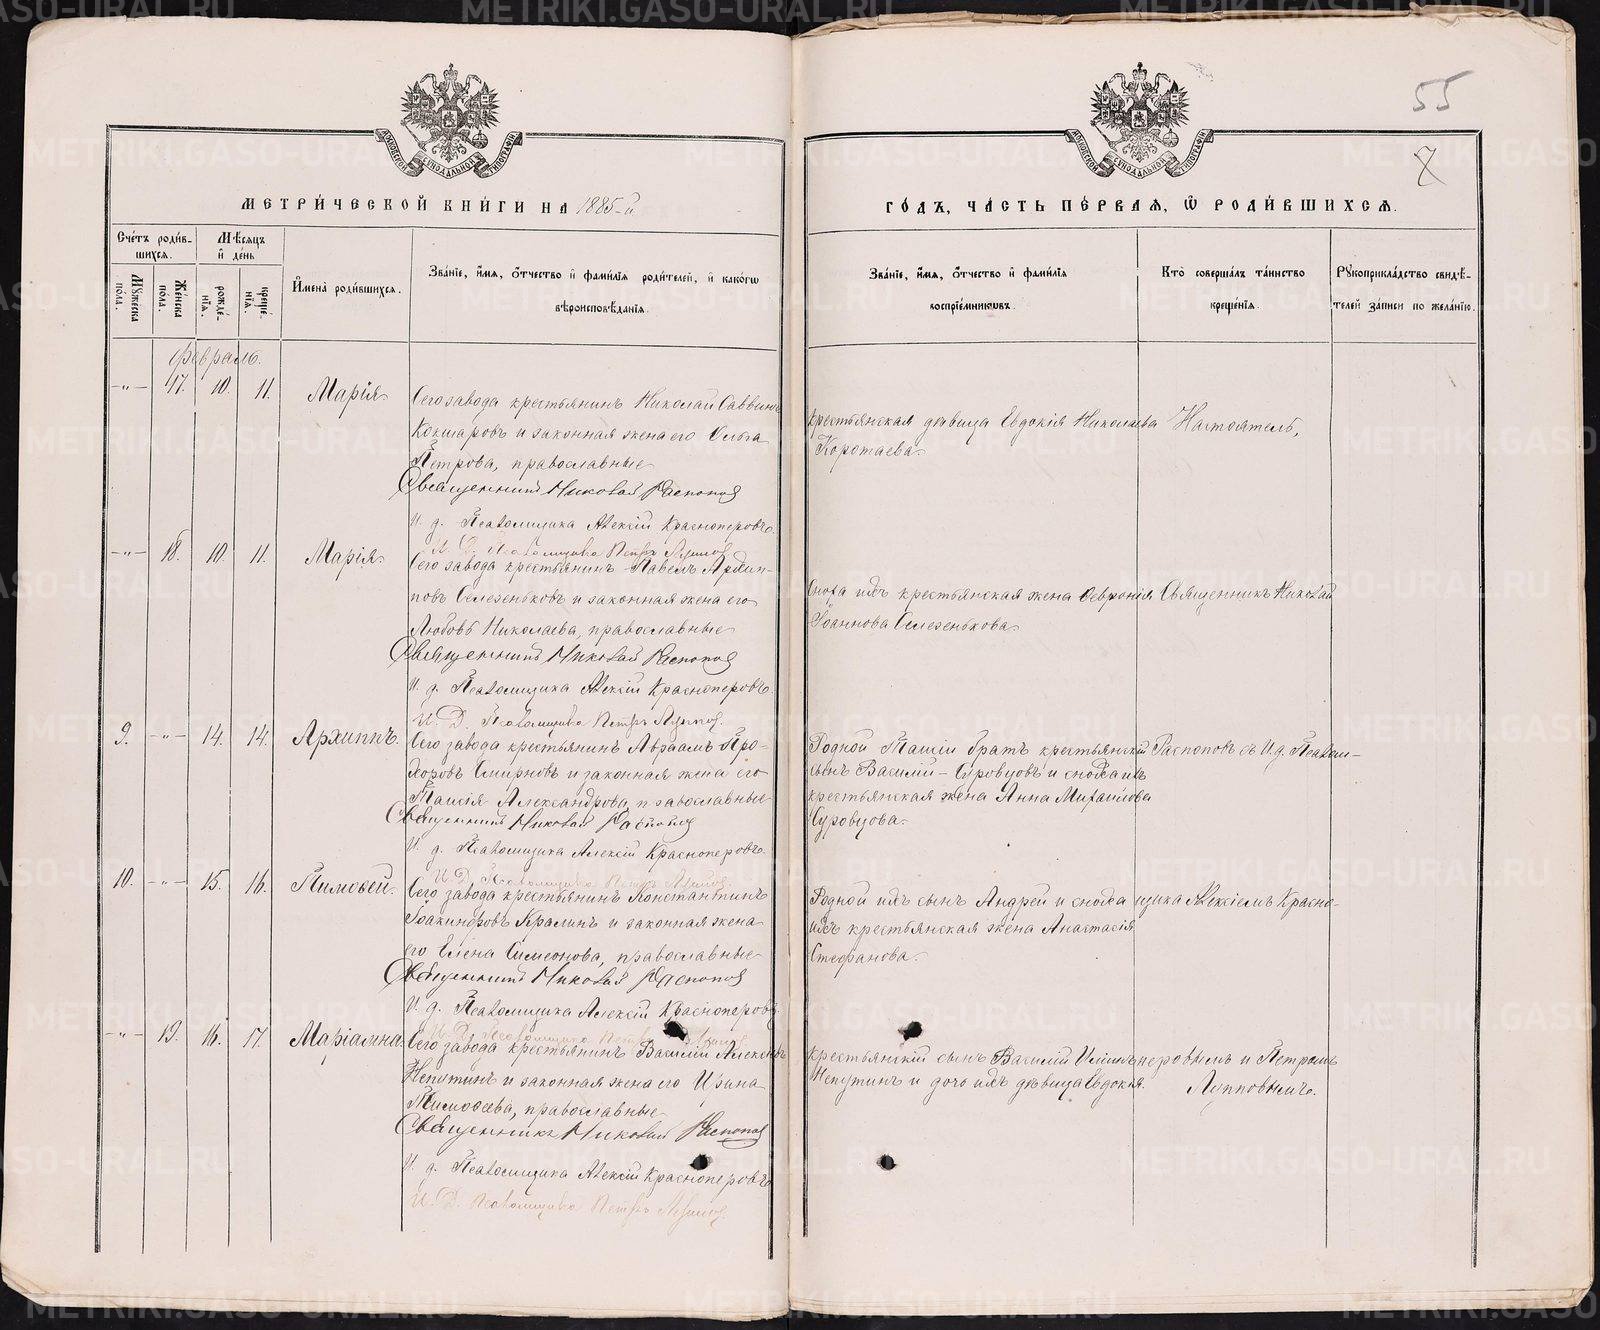 55
7
МЕТРИ́ЧЕСКОЙ КНИ́ГИ НА 1885-й
ГО́ДЪ, ЧА́СТЬ ПЕ́РВАЯ, Ѡ РОДИ́ВШИХСЯ.
Сче́тъ роди́в-
шихся.
Мѣ́сяцъ
и҆ де́нь
Му́жеска
по́ла.
Же́нска
по́ла.
рожде́-
нїя.
креще́-
нїя.
И҆мена̀ роди́вшихся.
Зва́нїе, и҆́мя, ѻ҆́тчество и҆ фами́лїя роди́телей, и҆ како́гѡ
вѣроисповѣ́данїя.
Зва́нїе, и҆́мя, ѻ҆́тчество и҆ фами́лїя
воспрїе́мниковъ.
Кто̀ соверша́лъ та́инство
креще́нїя.
Рукоприкла́дство свидѣ́-
телей за́писи по жела́нїю.
Февраль.
-"- 17. 10. 11. Марія
Сего завода крестьянинъ Николай Саввинъ
Кокшаровъ и законная жена его Ольга
Петрова, православные
Священникъ Николай Распопов
И. д. Псаломщика Алексій Красноперовъ
И. Д. Псаломщика Петръ Луппов
крестьянская дѣвица Евдокія Николаева
Коротаева
Настоятель,
-"- 18. 10. 11. Марія
Сего завода крестьянинъ Павелъ Архип-
повъ Селезеньковъ и законная жена его
Любовь Николаева, православные
Священникъ Николай Распопов
И. д. Псаломщика Алексій Красноперовъ
И. Д. Псаломщика Петръ Луппов.
Сноха ихъ крестьянская жена Февронія
Іоаннова Селезенькова
Священникъ Николай
9. -"- 14. 14. Архиппъ.
Сего завода крестьянинъ Авраамъ Про-
хоровъ Смирновъ и законная жена его
Таисія Александрова, православные
Священникъ Николай Распопов
И. д. Псаломщика Алексій Красноперовъ
И. Д. Псаломщика Петръ Луппов
Родной Таисіи братъ крестьянскій
сынъ Василій Суровцовъ и сноха ихъ
крестьянская жена Анна Михайлова
Суровцова.
Распоповъ съ И. д. Псалом-
10. -"- 15. 16. Тимоѳей.
Сего завода крестьянинъ Константинъ
Іоакинфовъ Кралинъ и законная жена
его Елена Симеонова, православные
Священникъ Николай Распопов
И. д. Псаломщика Алексій Красноперовъ
И. Д. Псаломщика Петръ Луппов
Родной ихъ сынъ Андрей и сноха
ихъ крестьянская жена Анастасія
Стефанова.
щика Алексіемъ Красно-
-"- 19. 16. 17. Маріамна
Сего завода крестьянинъ Василій Алексѣевъ
Непутинъ и законная жена его Ирина
Тимоѳеева, православные
Священникъ Николай Распопов
И. д. Псаломщика Алексій Красноперовъ
И. Д. Псаломщика Петръ Луппов.
крестьянскій сынъ Василій
Непутинъ и дочь ихъ дѣвица Евдокія.
неровымъ и Петромъ
Лупповымъ.